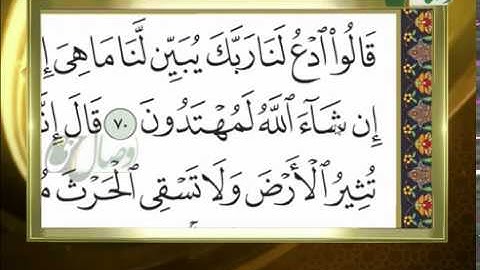 قَالُوا۟ ٱدْعُ لَنَا رَبَّكَ يُبَيِّن لَّنَا مَا هِىَ إِ
إِن شَآءَ ٱللَّهُ لَمُهْتَدُونَ ٧٠ قَالَ إِنَّ
تُثِيرُ ٱلْأَرْضَ وَلَا تَسْقِى ٱلْحَرْثَ مُ
وصال